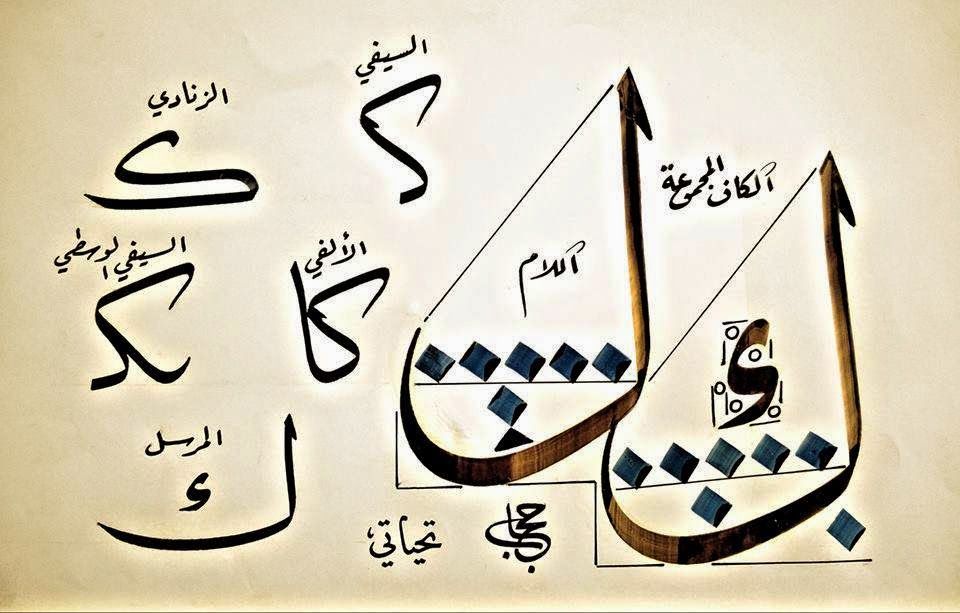 السيفي
كـ
الزنادي
ك
الكاف المجموعة
ل
ك
اللام
الألفي
كا
السيفي الوسطي
المرسل
ك
تحياتي